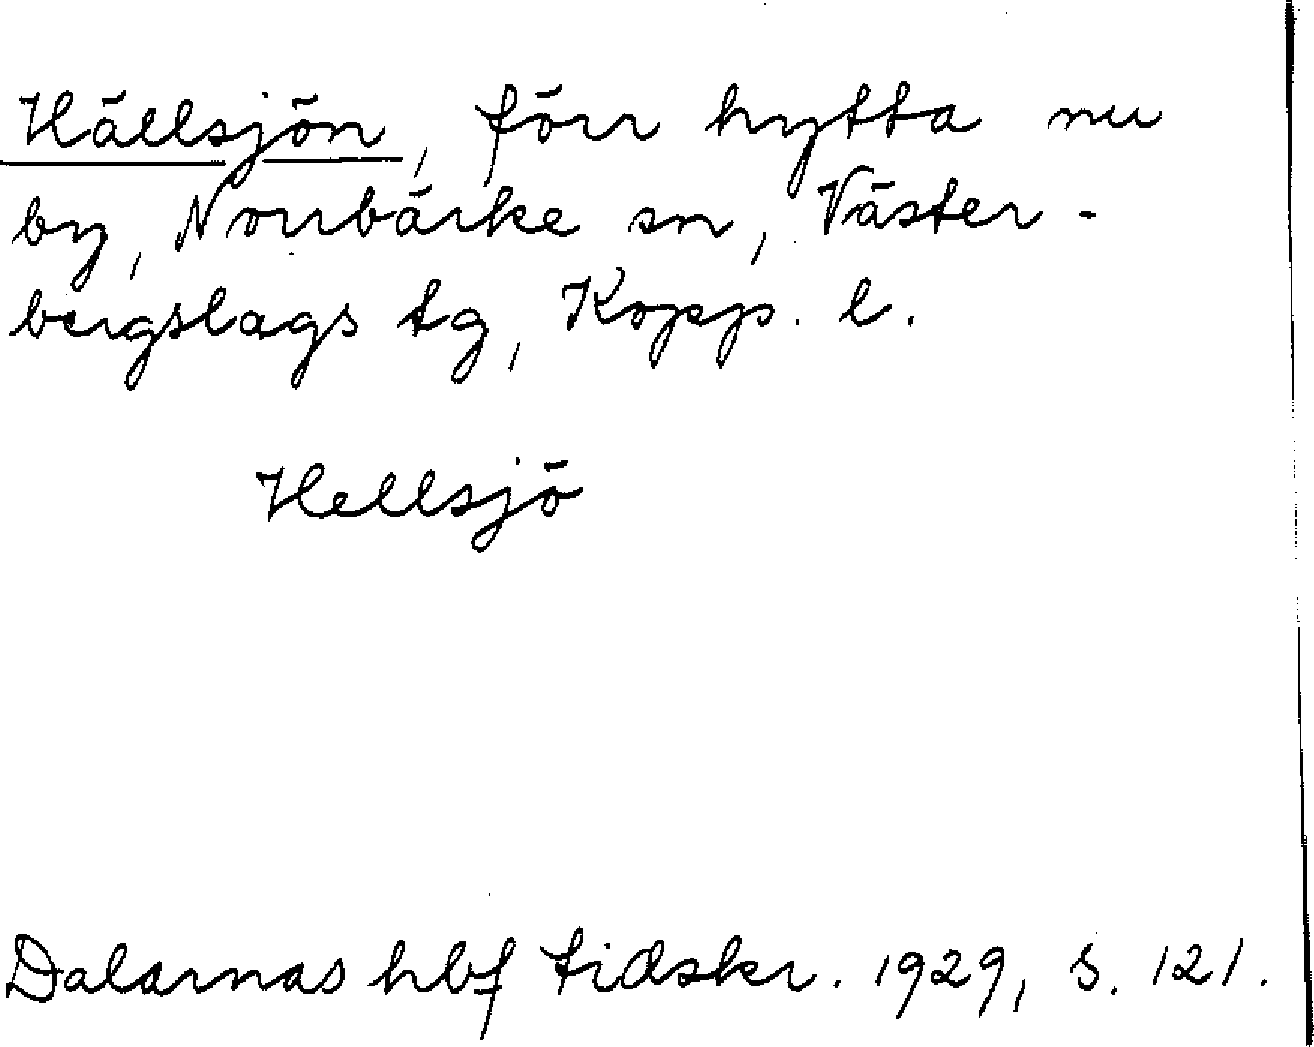 Hällsjön, förr hytta nu
by, Norrbärke sn, Väster-
bergslags tg, Kopp. l.
Hellsjö
Dalarnas hbf tidskr. 1929, s. 121.